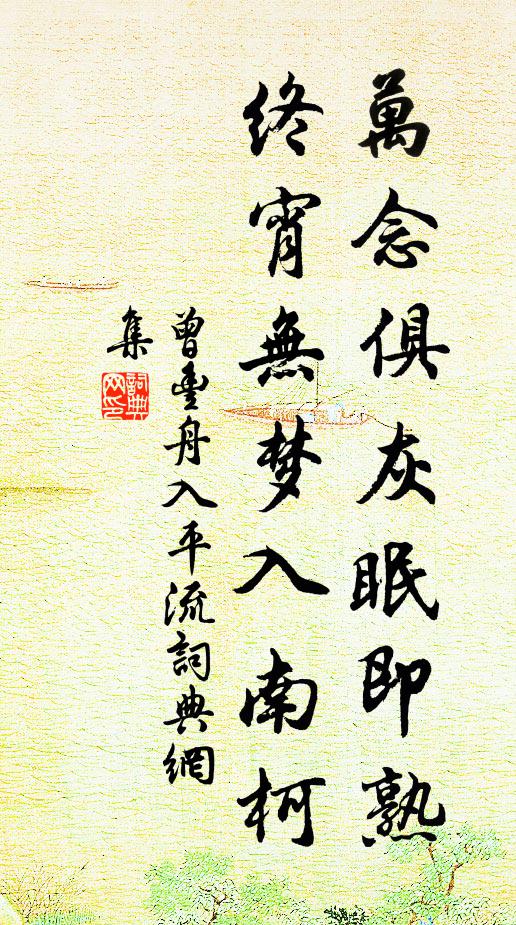 萬念俱灰眠即熟
終宵無梦入南柯
曾豊舟入平流詞典網
集
詞典
网印